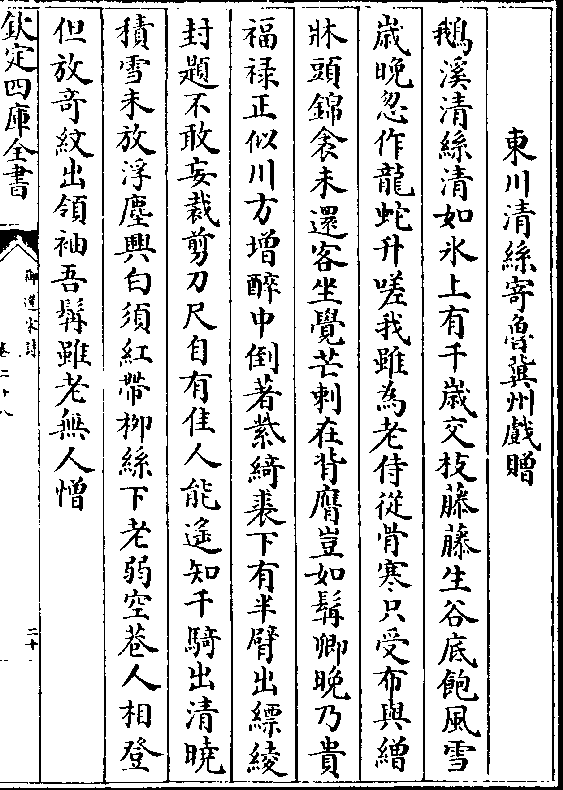 東川清絲寄魯冀州戲贈
鵝溪清絲清如氷上有千歲交枝藤藤生谷底飽風雪
歲晚忽作龍蛇升嗟我雖為老侍從骨寒只受布與繒
牀頭錦衾未還客坐覺芒刺在背膺豈如髯卿晚乃貴
福禄正似川方增醉中倒著紫綺裘下有半臂出縹綾
封題不敢妄裁剪刀尺自有佳人能遙知千騎出清曉
積雪未放浮塵興白須紅帶柳絲下老弱空巷人相登
但放奇紋出領袖吾髯雖老無人憎
欽定四庫全書
御選宋詩
卷二十八
二十